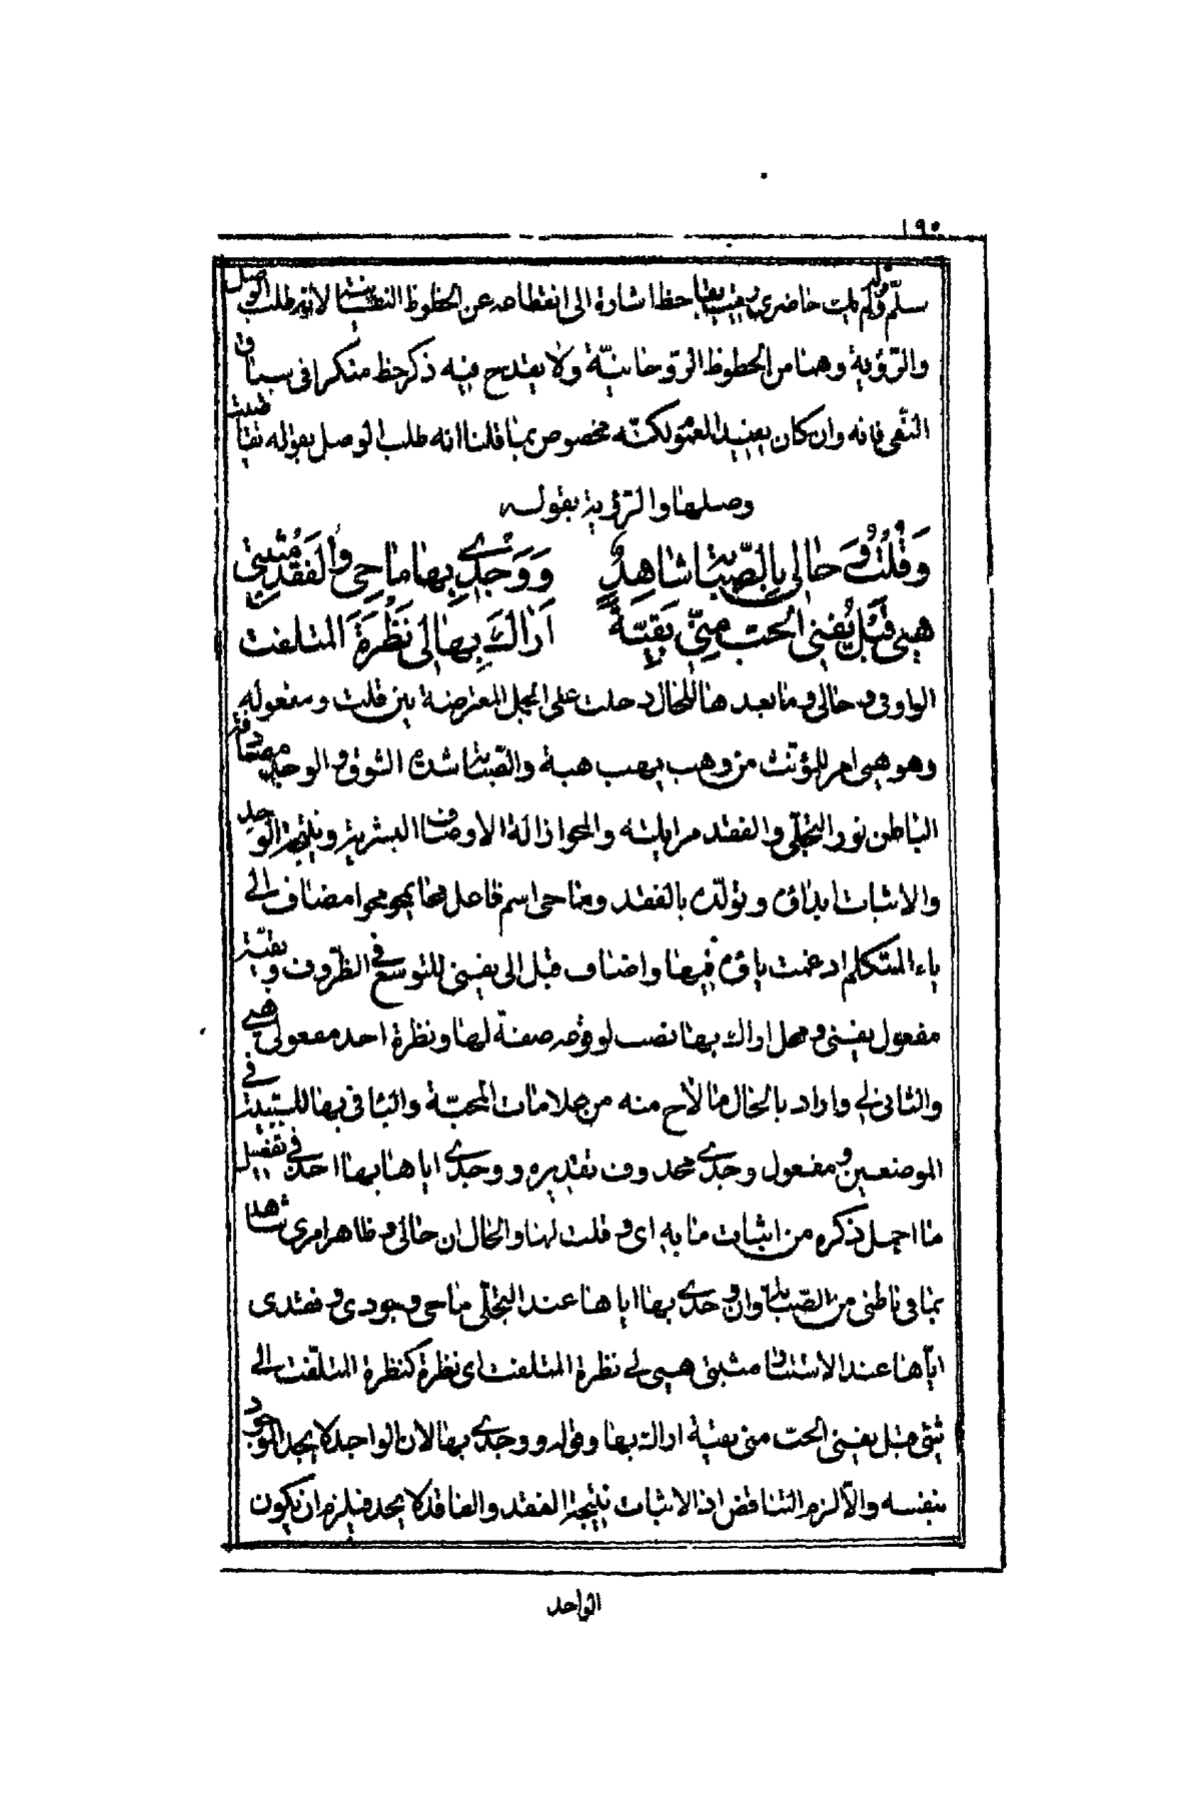 ١٩٠
سلّم وقوله ولم يك حاضري رقيب بقا حظ اشارة الى انقطاعه عن الحظوظ النفسانية لانه طلب الوصل
والرّؤية وهما من الحظوظ الرّوحانيّة ولا يقدح فيه ذكر حظ منكرا فى سياق
النّفى فانه وان كان يفيد العموم لكنّه مخصوص بما قلنا انه طلب الوصل بقوله بقيا طلبت
وصلها والرّؤية بقوله
وَقُلْتُ وَحالى بِالصَّبابَةِ شاهِدٌ وَوَجْدى بِها ماحِىَّ وَالفَقْدُ مُثْبِتى
هبى قَبْلَ يُفنى الحبّ مِنّى بَقِيّةً اَراكِ بِها لى نَظْرَةَ المتلفت
الواو فى وحالى وما بعدها للحال دخلت على الجمل المعترضة بين قلت ومفعوله
وهو هبى امر للمؤنّث من وهب يهب هبة والصّبابة شدة الشوق والوجد مصادفة
الباطن نور التجلّى والفقد مزايلته والمحو ازالة الاوصاف البشرية ونتيجة الوجد
والاثبات ابداؤه وتولّده بالفقد وماحى اسم فاعل محا يمحو محوا مضاف الى
ياء المتكلم ادغمت ياؤه فيها واضاف قبل الى يفنى للتوسع فى الظروف وبقيّة
مفعول يفنى ومحل اراك بها نصب لوقوعه صفة لها ونظرة احد مفعولى هبى
والثانى لى واراد بالحال ما لاح منه من علامات المحبّة والباء فى بها للسببية فى
الموضعين ومفعول وجدى محذوف تقديره ووجدى اياها بها اخذ فى تفصيل
ما اجمل ذكره من اثبات ما به اى وقلت لها والحال ان حالى وظاهر امرى شاهد
بما فى باطنى من الصبابة وان وجدى بها اياها عند التجلّى ماحى وجودى وفقدى
ايّاها عند الاستتار مثبتى هبى لى نظرة المتلفت اى نظرة كنظرة المتلفّت الى
شئ قبل يفنى الحبّ منى بقية اراك بها وقوله ووجدى بها لان الواجد لا يجد الوجود
بنفسه والّا لزم التناقض اذ الاثبات نتيجة الفقد والفاقد لا يجد فيلزم ان يكون
الواحد